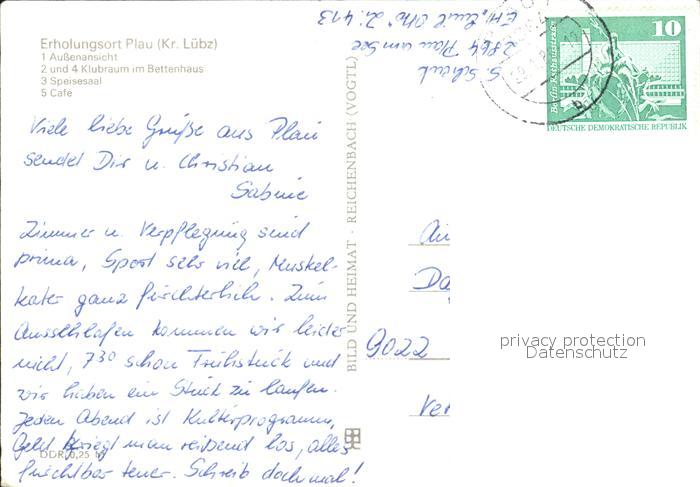 Erholungsort Plau (Kr. Lübz)
1 Außenansicht
2 und 4 Klubraum im Bettenhaus
3 Speisesaal
5 Cafe
Viele liebe Grüße aus Plau
sendet Dir u. Christian
Sabine
Zimmer u. Verpflegung sind
prima, Sport sehr viel, Muskel-
kater ganz fürchterlich. Zum
Ausschlafen kommen wir leider
nicht, 7³⁰ schon Frühstück und
wir haben ein Stück zu laufen.
Jeden Abend ist Kulturprogramm,
Geld kriegt man reißend los, alles
furchtbar teuer. Schreib doch mal!
DDR 0,25 M
BILD UND HEIMAT · REICHENBACH (VOGTL)
S. Schenk
2864 Plau am See
10
Berlin, Rathausstraße
DEUTSCHE DEMOKRATISCHE REPUBLIK
An
Da
9022
privacy protection
Datenschutz